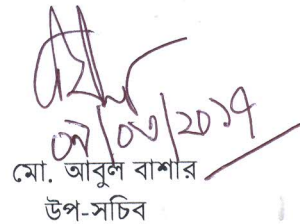 ০৭/০৩/২০১৭
মো. আবুল বাশার
উপ-সচিব